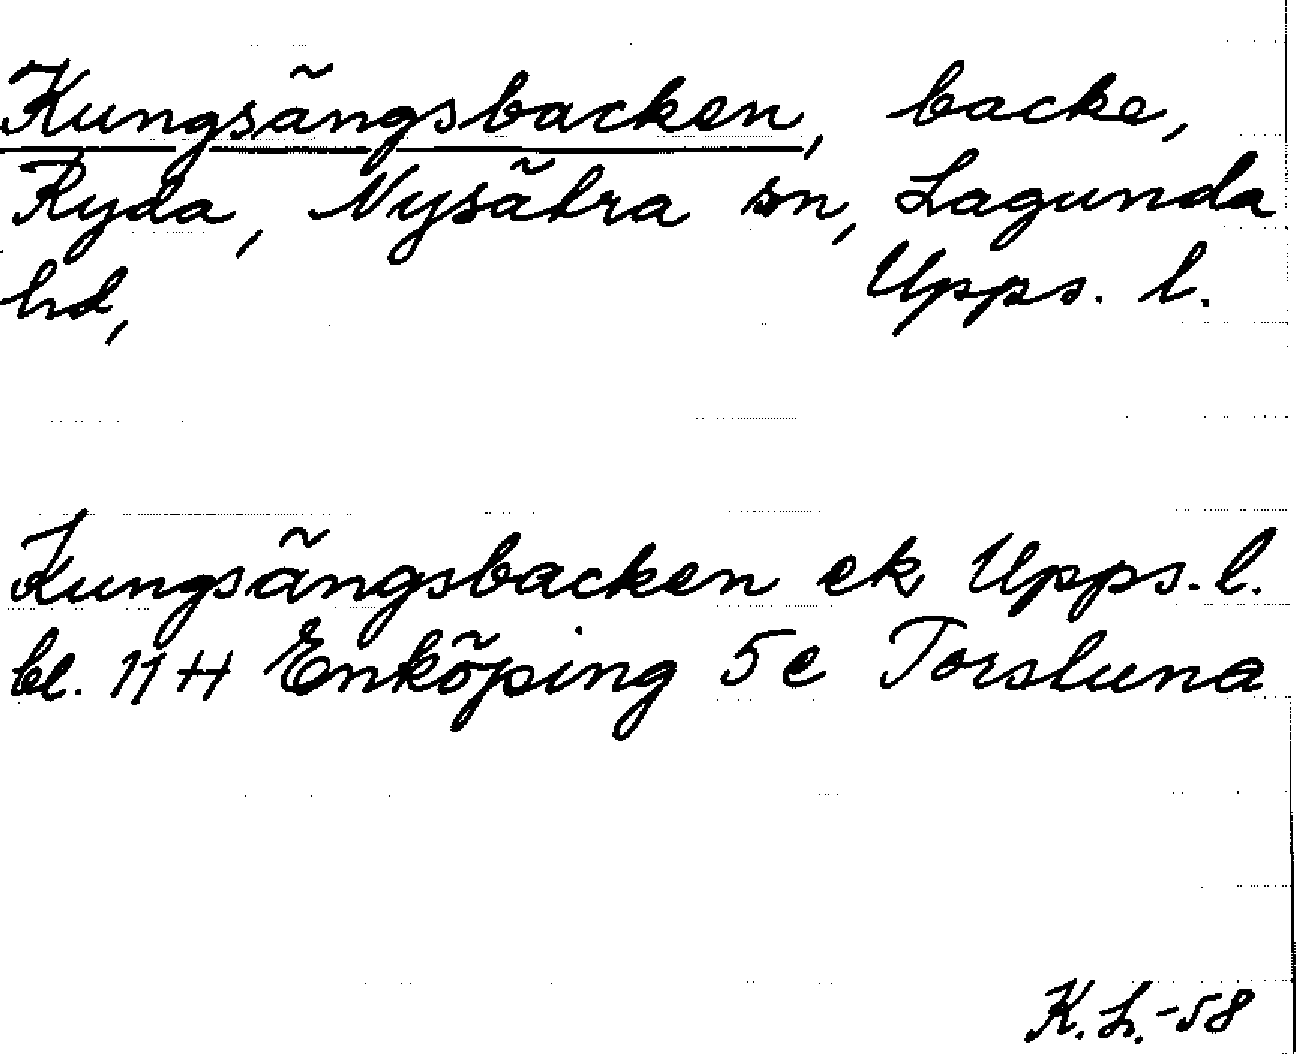 Kungsängsbacken, backe,
Ryda, Nysätra sn, Lagunda
hd, Upps. l.
Kungsängsbacken ek Upps. l.
bl. 11 H Enköping 5 e Torsluna
K. L. -58